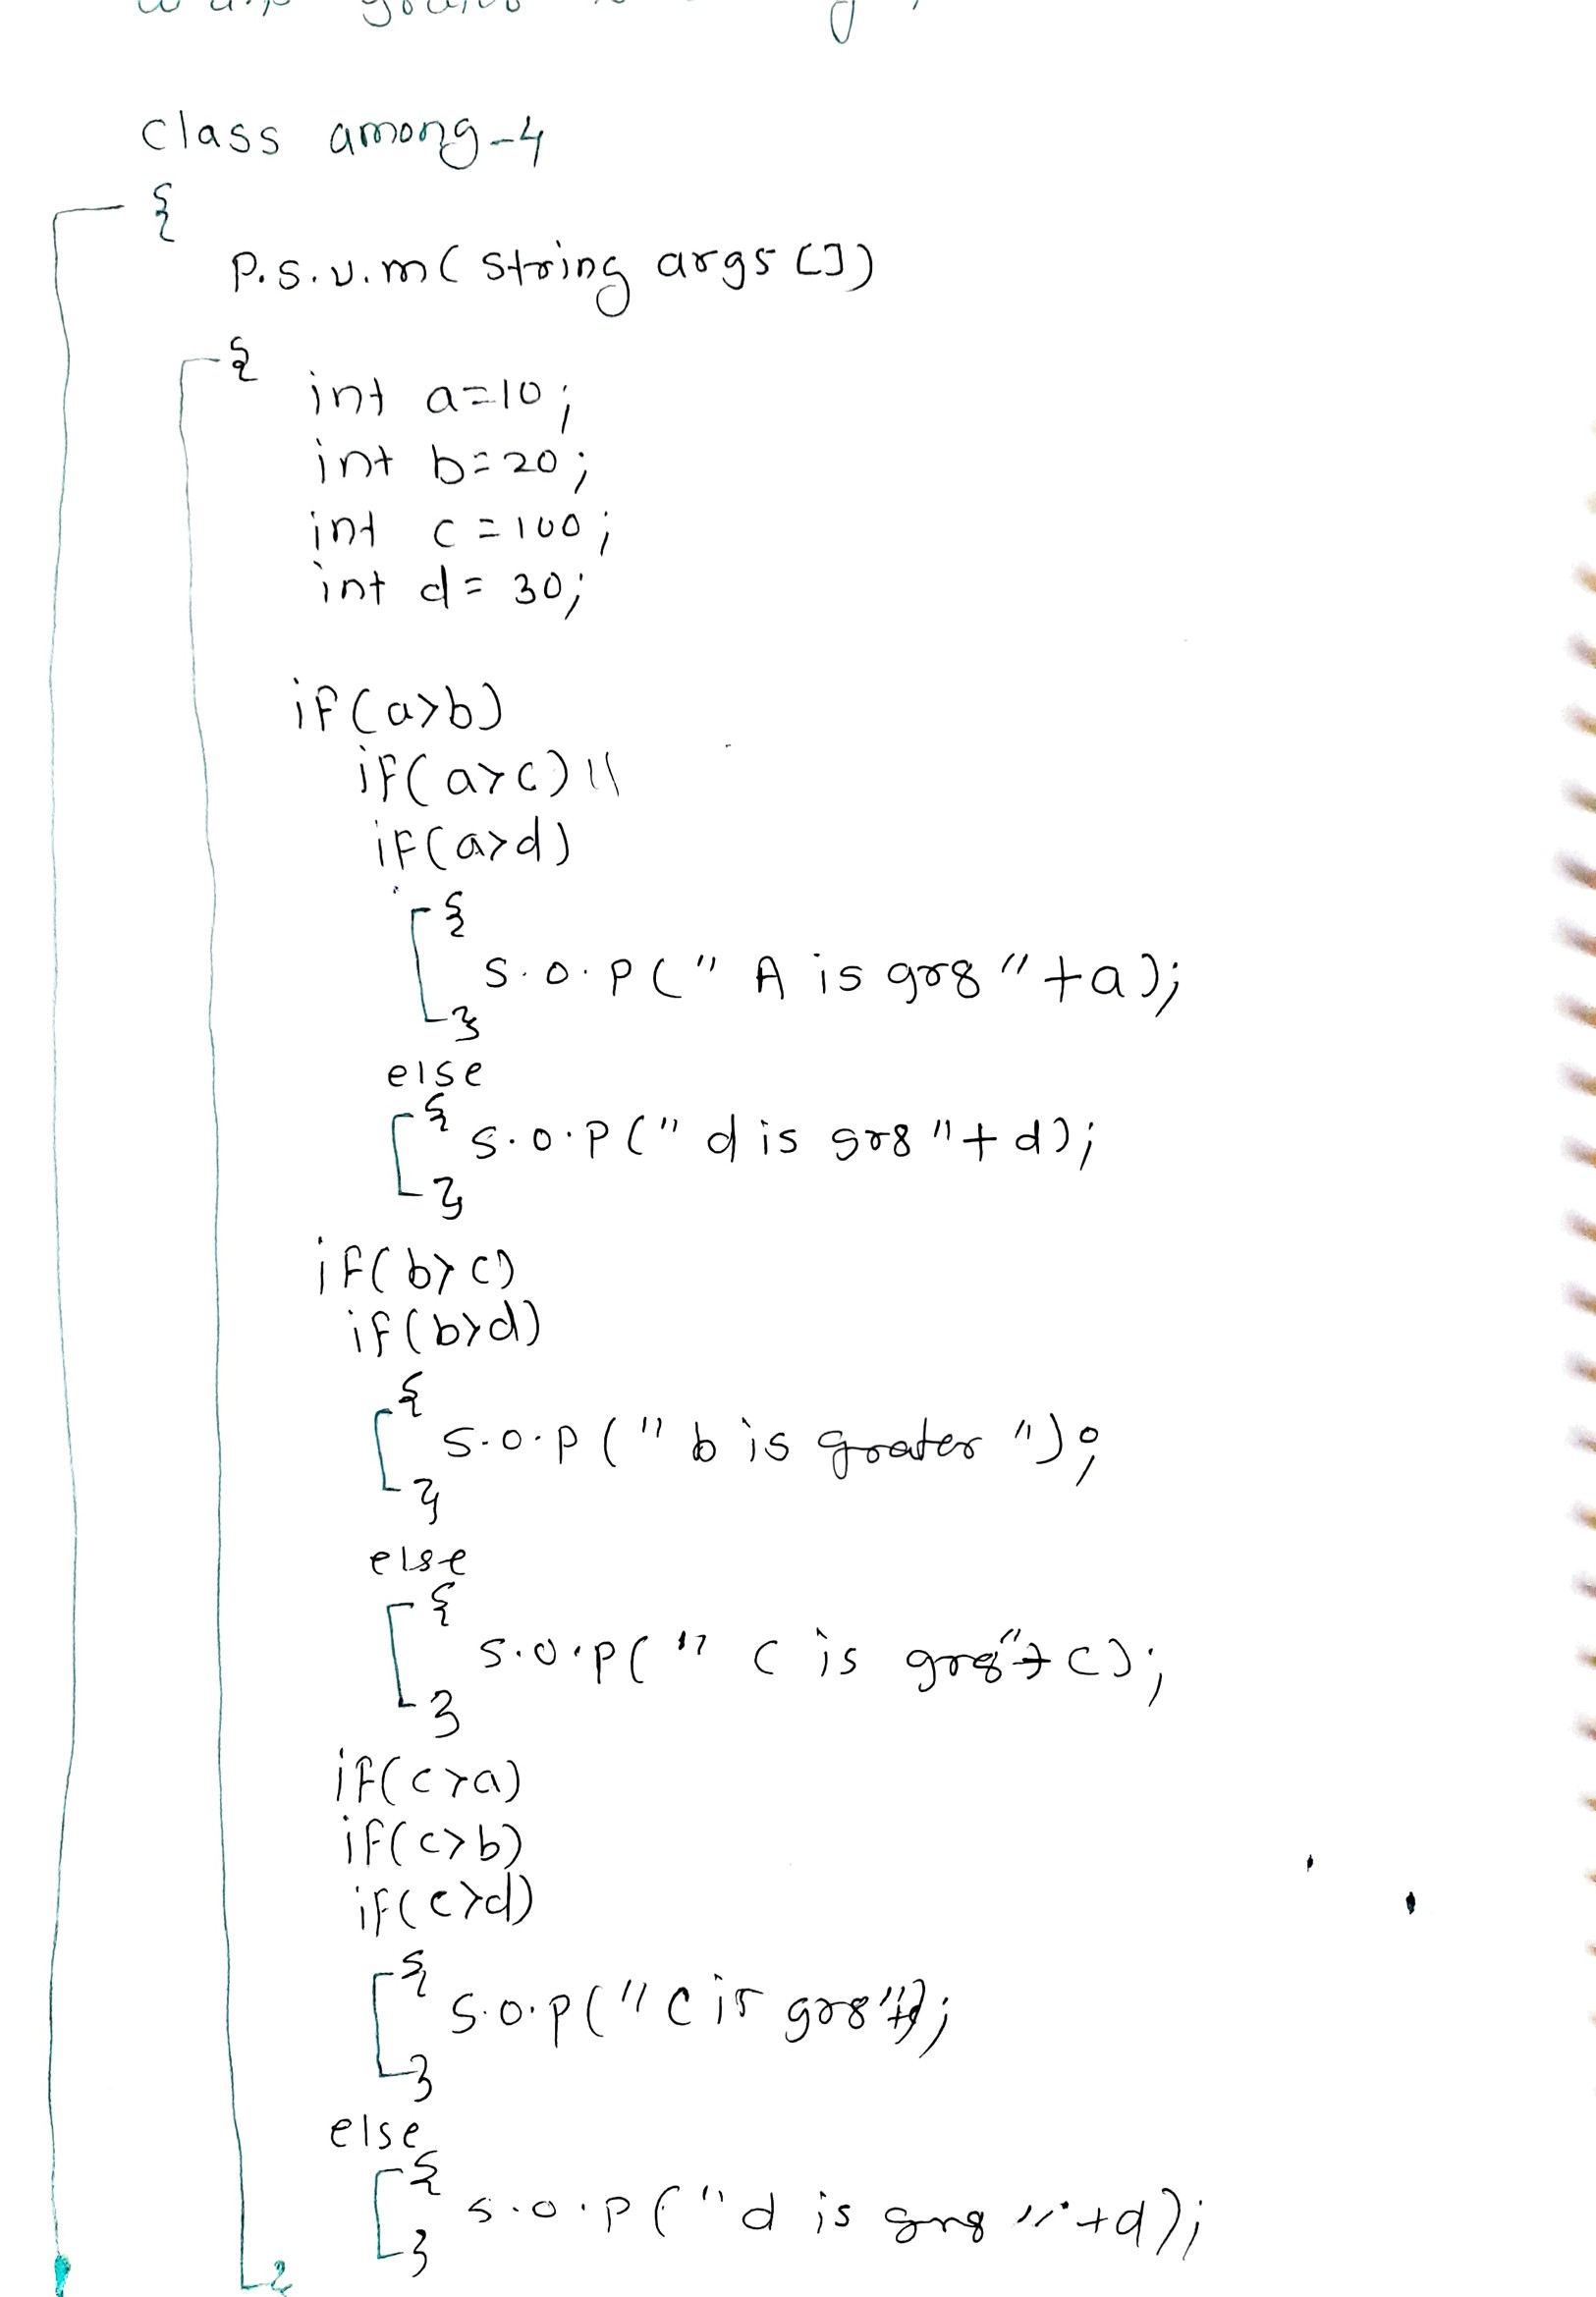 class among-4
{
P.s.v.m(string args[])
{
int a=10;
int b=20;
int c=100;
int d=30;
if(a>b)
if(a>c)||
if(a>d)
{
s.o.p(" A is gr8 "+a);
}
else
{
s.o.p(" d is gr8 "+d);
}
if(b>c)
if(b>d)
{
s.o.p(" b is grater ");
}
else
{
s.o.p(" c is gr8"+c);
}
if(c>a)
if(c>b)
if(c>d)
{
s.o.p("c is gr8");
}
else
{
s.o.p("d is gr8 "+d);
}
}